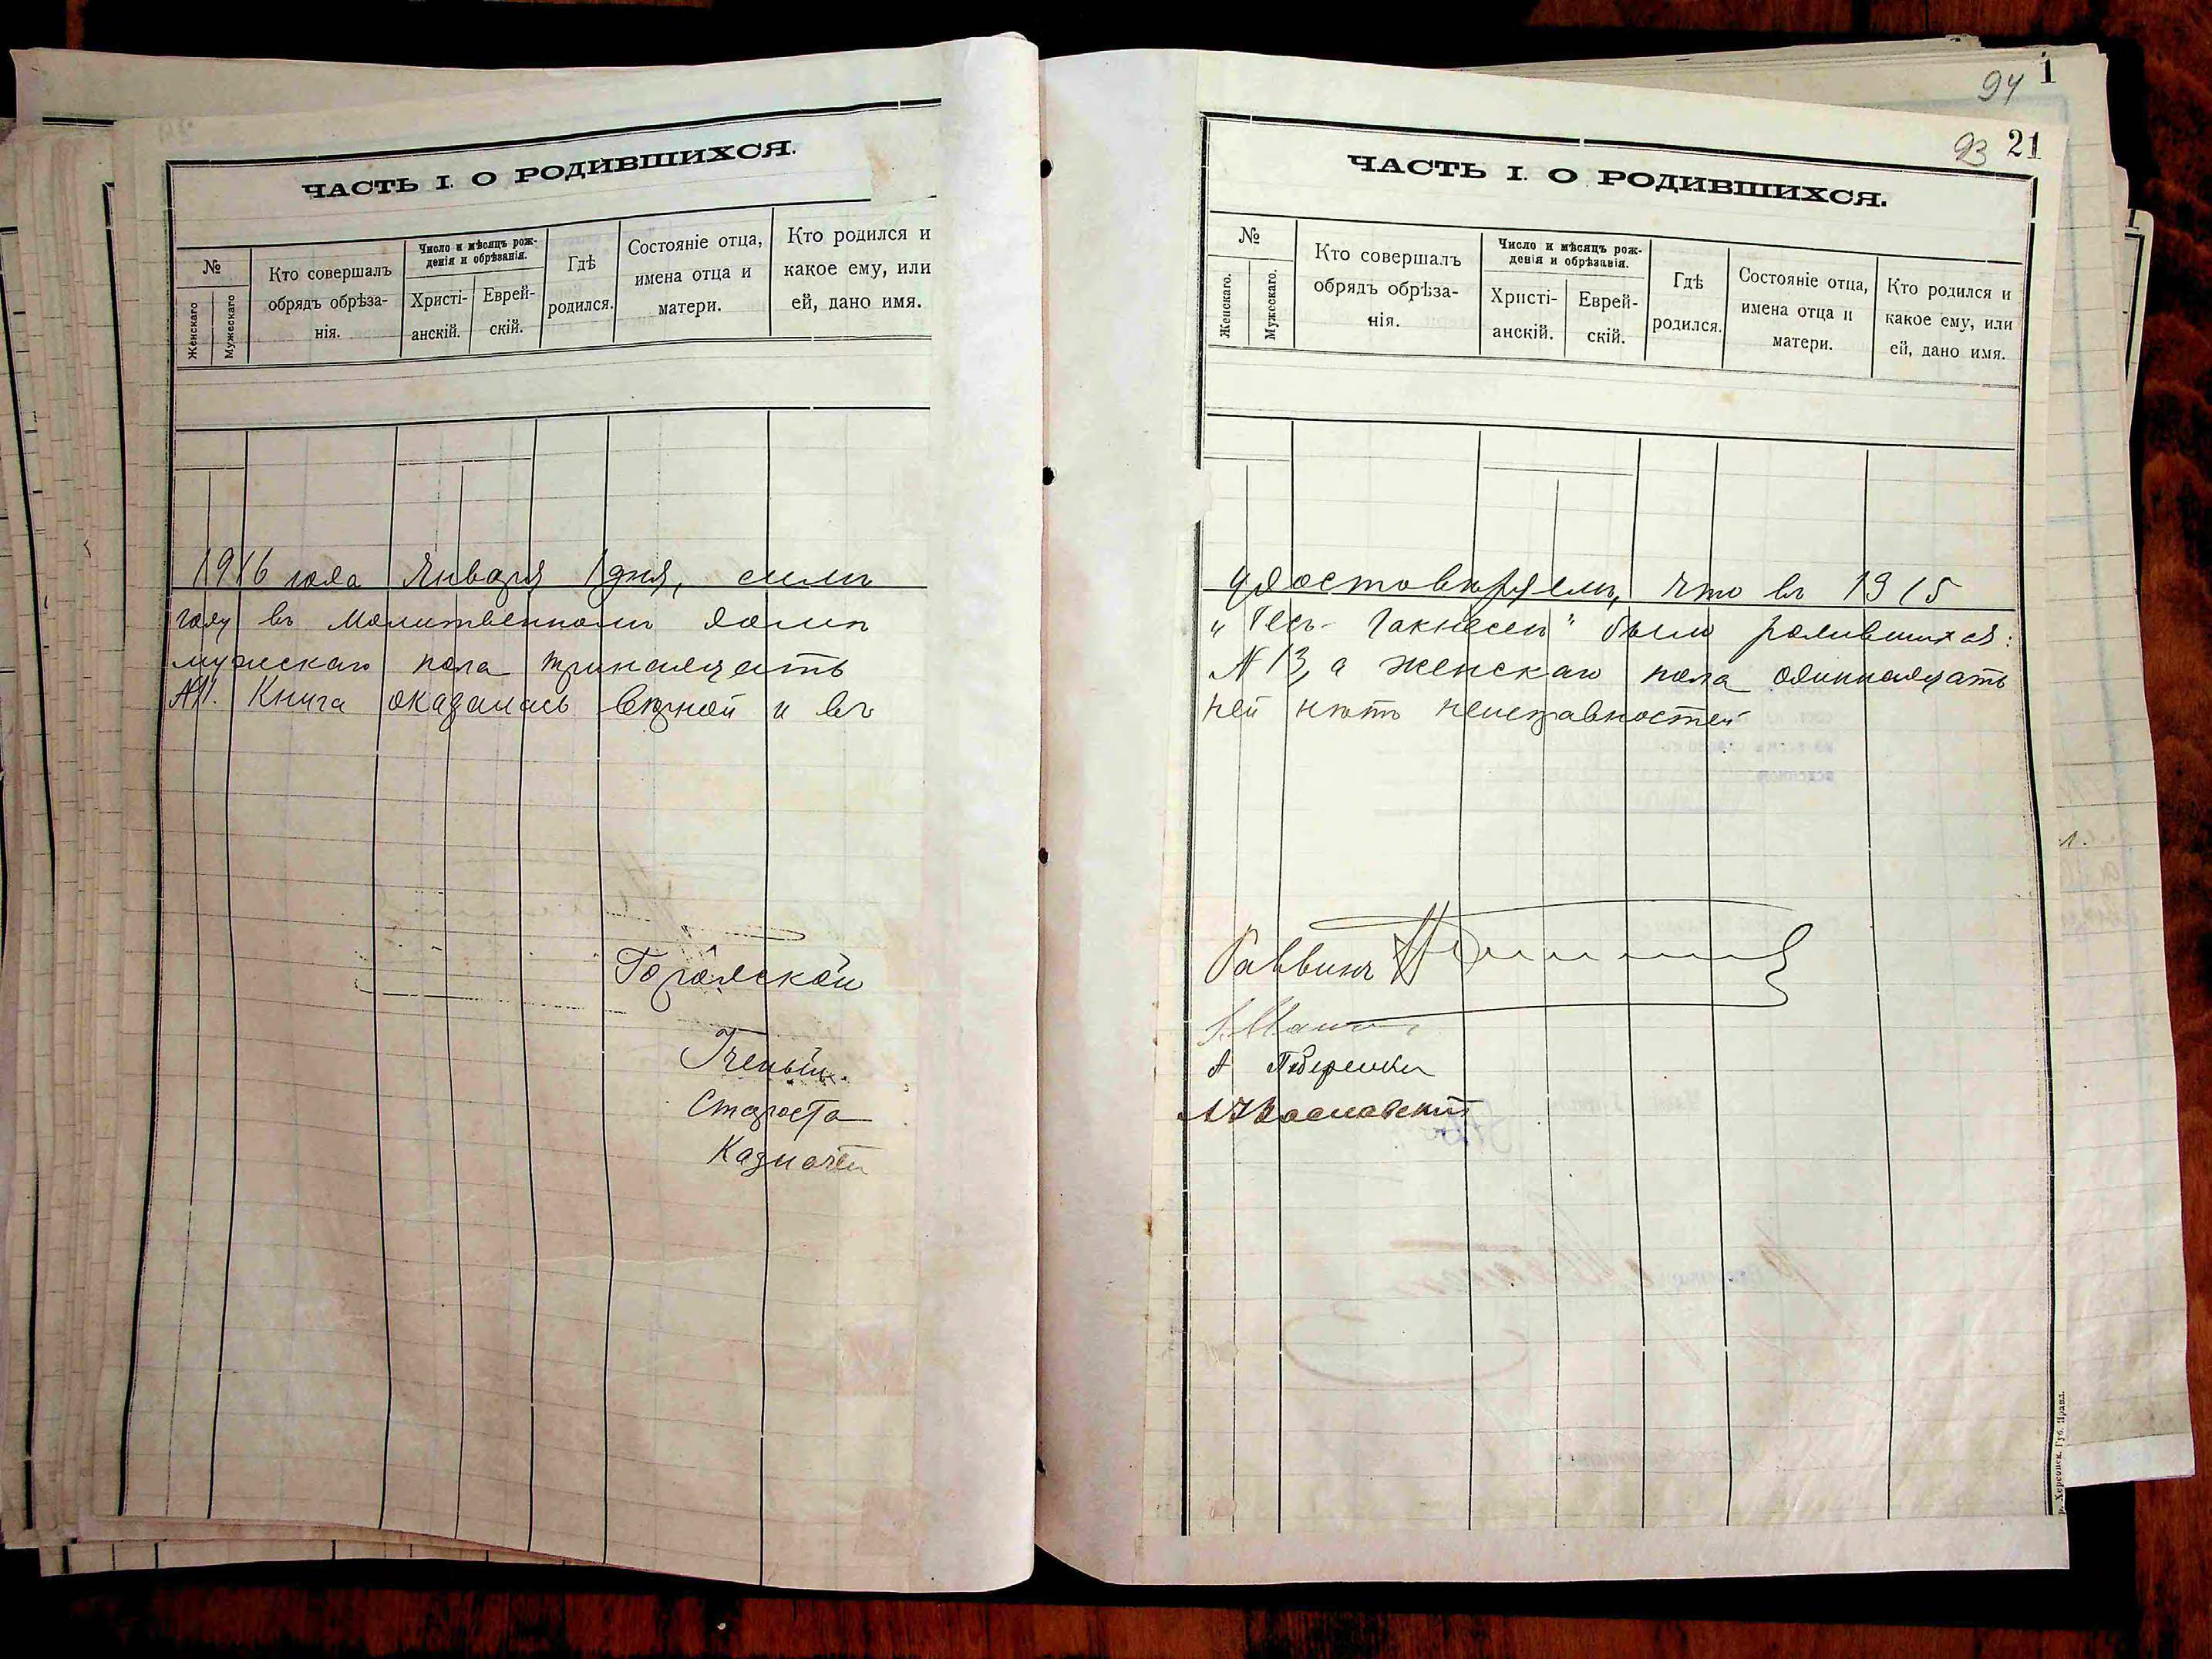 ЧАСТЬ I. О РОДИВШИХСЯ.
№
Женскаго
Мужескаго
Кто совершалъ
обрядъ обрѣза-
нія.
Число и мѣсяцъ рож-
денія и обрѣзанія.
Христі-
анскій.
Еврей-
скій.
Гдѣ
родился.
Состояніе отца,
имена отца и
матери.
Кто родился и
какое ему, или
ей, дано имя.
1916 года Января 1 дня, симъ
году въ молитвенномъ домѣ
мужскаго пола тринадцать
№11. Книга оказалась вѣрной и въ
Городской
Ученый
Староста
Казначей
94 1
93 21
ЧАСТЬ I. О РОДИВШИХСЯ.
№
Женскаго.
Мужескаго.
Кто совершалъ
обрядъ обрѣза-
нія.
Число и мѣсяцъ рож-
денія и обрѣзанія.
Христі-
анскій.
Еврей-
скій.
Гдѣ
родился.
Состояніе отца,
имена отца и
матери.
Кто родился и
какое ему, или
ей, дано имя.
удостовѣряемъ, что въ 1915
"Бесъ-Гакнесетъ" было родившихся:
№ 13, а женскаго пола одиннадцать
ней нѣтъ неисправностей
Раввинъ
Херсонск. Губ. Правл.